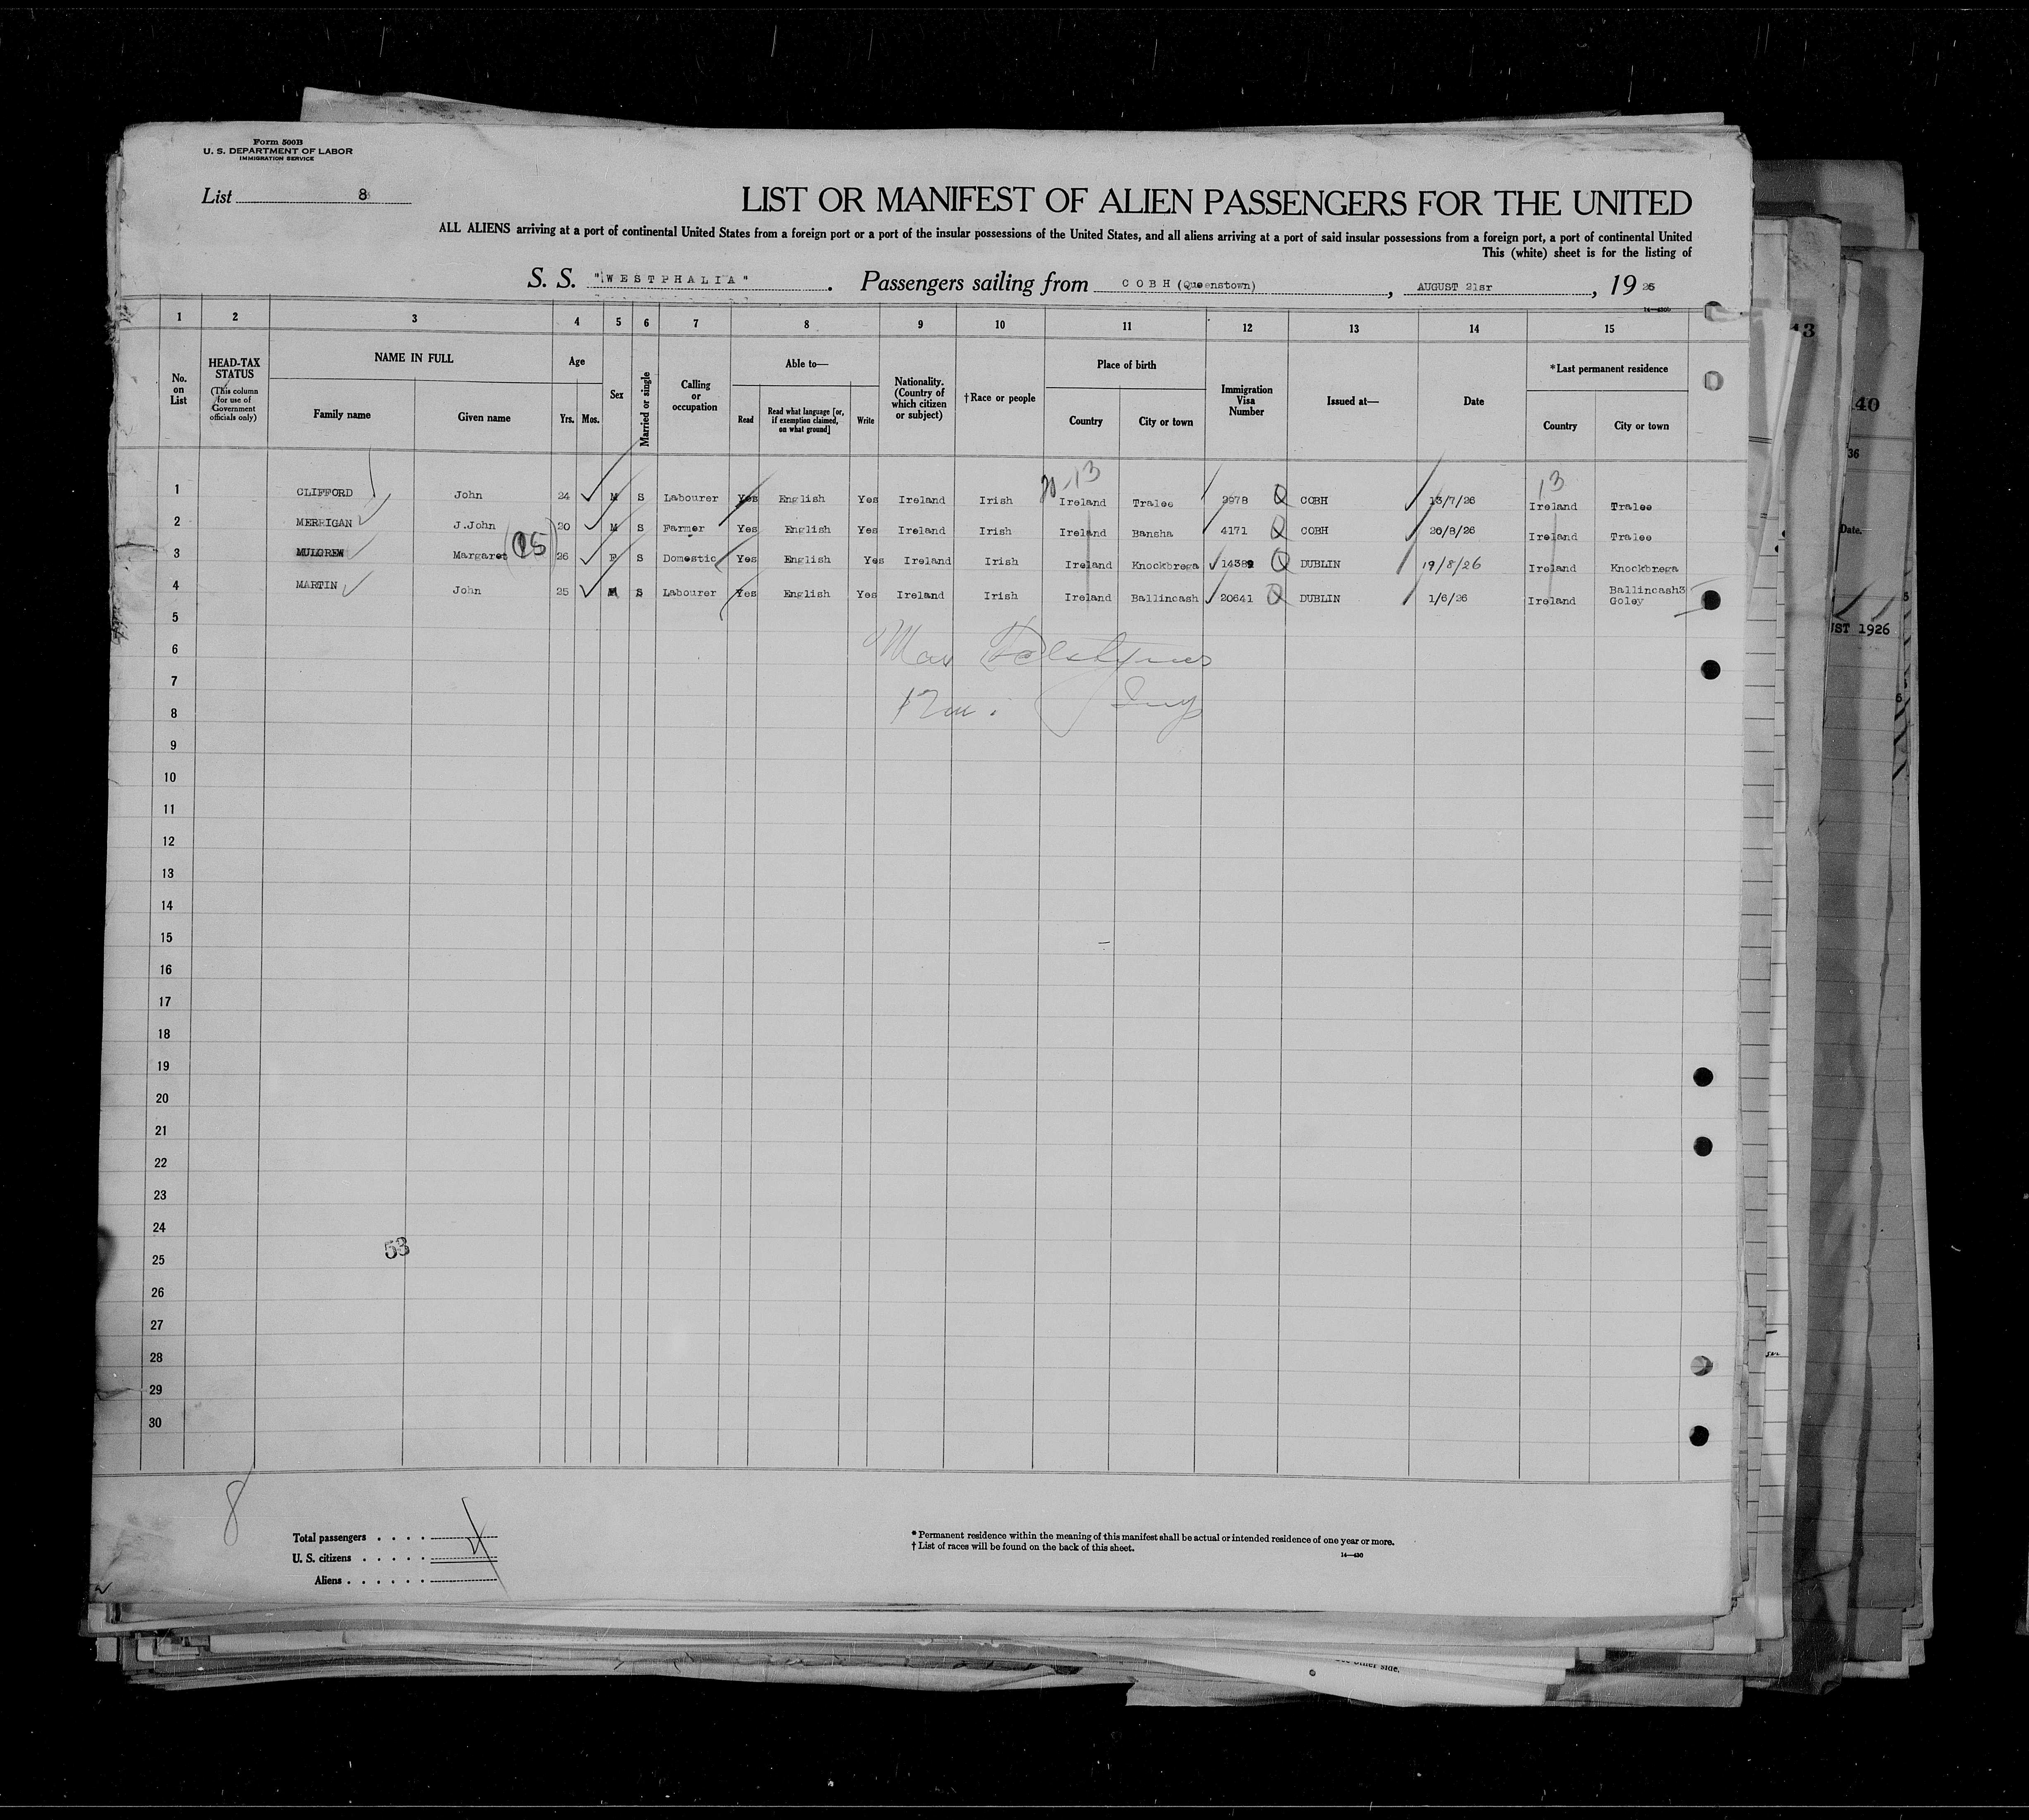 Form 500B
U. S. DEPARTMENT OF LABOR
IMMIGRATION SERVICE
List 8
LIST OR MANIFEST OF ALIEN PASSENGERS FOR THE UNITED
ALL ALIENS arriving at a port of continental United States from a foreign port or a port of the insular possessions of the United States, and all aliens arriving at a port of said insular possessions from a foreign port, a port of continental United
This (white) sheet is for the listing of
S. S. "WESTPHALIA". Passengers sailing from COBH (Queenstown), AUGUST 21sr, 19 26
1 2 3 4 5 6 7 8 9 10 11 12 13 14 15
No. on List
HEAD-TAX STATUS (This column for use of Government officials only)
NAME IN FULL Family name Given name
Age Yrs. Mos.
Sex
Married or single
Calling or occupation
Able to— Read Read what language [or, if exemption claimed, on what ground] Write
Nationality. (Country of which citizen or subject)
†Race or people
Place of birth Country City or town
Immigration Visa Number
Issued at—
Date
*Last permanent residence Country City or town
13 13
1 CLIFFORD John 24 M S Labourer Yes English Yes Ireland Irish Ireland Tralee 3978 COBH 13/7/26 Ireland Tralee
2 MERRIGAN J.John 20 M S Farmer Yes English Yes Ireland Irish Ireland Bansha 4171 COBH 20/8/26 Ireland Tralee
3 MULGREW Margaret 26 F S Domestic Yes English Yes Ireland Irish Ireland Knockbrega 14389 DUBLIN 19/8/26 Ireland Knockbrega
4 MARTIN John 25 M S Labourer Yes English Yes Ireland Irish Ireland Ballincash 20641 DUBLIN 1/6/26 Ireland Ballincash Goley
5
6
7
8
9
10
11
12
13
14
15
16
17
18
19
20
21
22
23
24
53
25
26
27
28
29
30
8
Total passengers
U. S. citizens
Aliens
* Permanent residence within the meaning of this manifest shall be actual or intended residence of one year or more.
† List of races will be found on the back of this sheet.
14—430
13
40
36
Date.
UST 1926
other side.